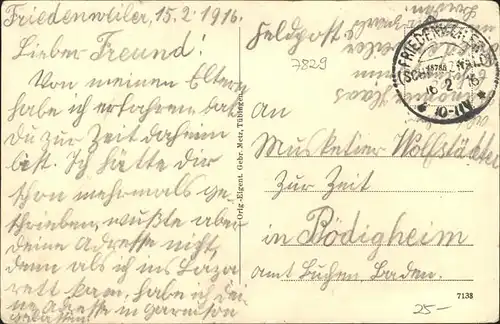 Friedenweiler, 15.2.1916.
Lieber Freund.
Von meinen Eltern
habe ich erfahren daß
du zur Zeit daheim
bist. Ich hätte dir
schon mehrmals ge
schrieben, wußte aber
deine Adresse nicht,
denn als ich ins Laza
rett kam, habe ich dei
ne Adresse in Garnison
gelassen.
Orig.-Eigent. Gebr. Metz, Tübingen.
Feldpost
7829
FRIEDENWEILER
(SCHWARZWALD)
16.2.16
10-11V
An
Musketier Wolfstädter
Zur Zeit
in Bödigheim
Amt Buchen, Baden.
7138
25-